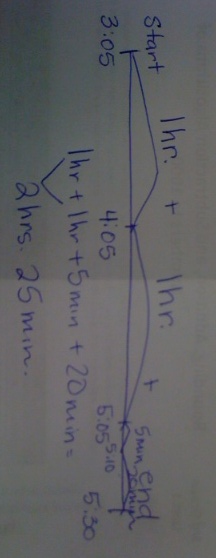 Start 1hr. + 1hr. + 5min. 20min end
3:05 4:05 5:05 5:10 5:30
1hr + 1hr + 5min + 20min =
2hrs. 25min.